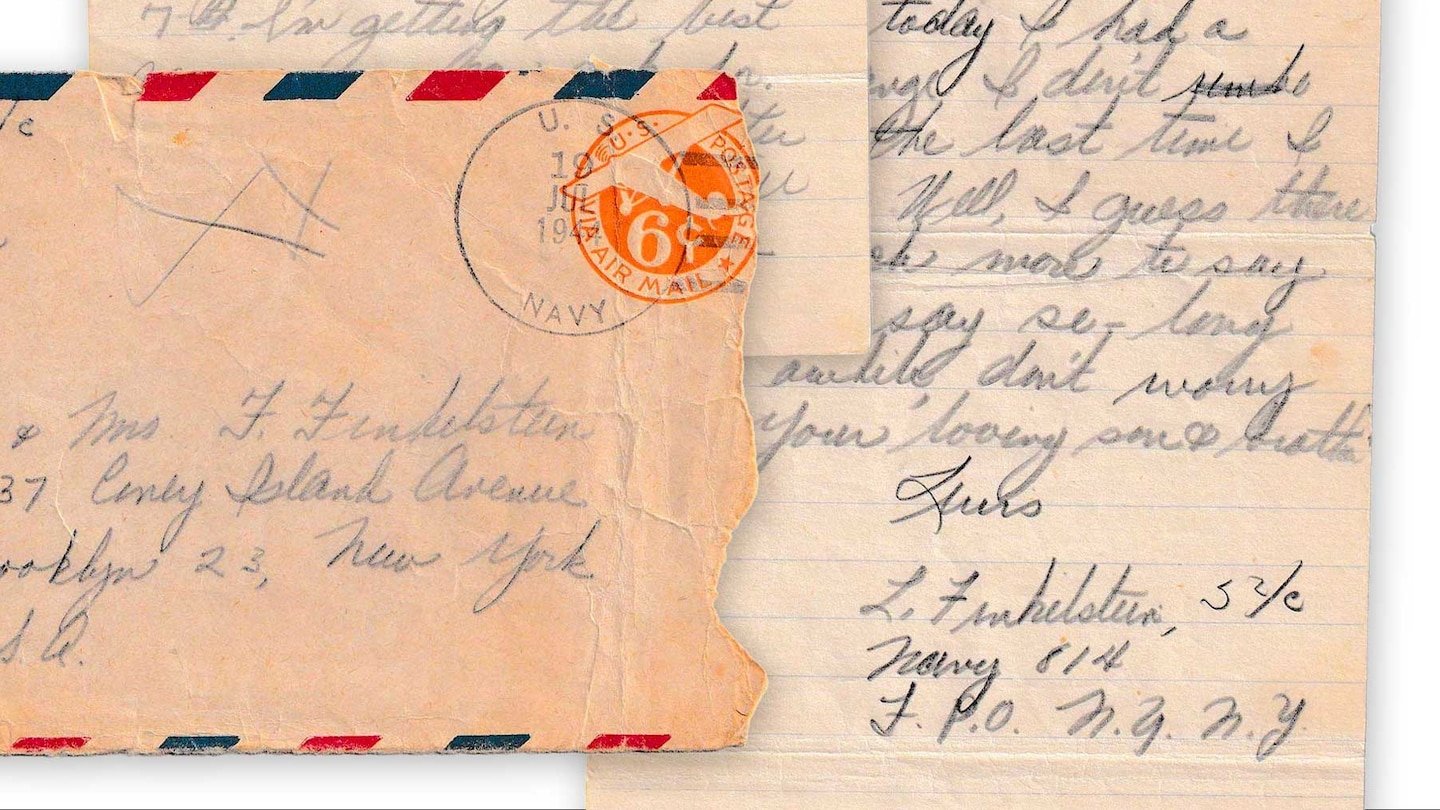 7 I'm getting the best
today I had a
I don't
the last time I
Well, I guess there
more to say
say so-long
awhile, don't worry
Your loving son &
L. Finkelstein, S2/c
Navy 814
F.P.O. N.Y. N.Y.
/c
U. S.
19
JUL
1944
NAVY
U.S. POSTAGE
6¢
VIA AIR MAIL
& Mrs. F. Finkelstein
37 Coney Island Avenue
ooklyn 23, New York
S. A.